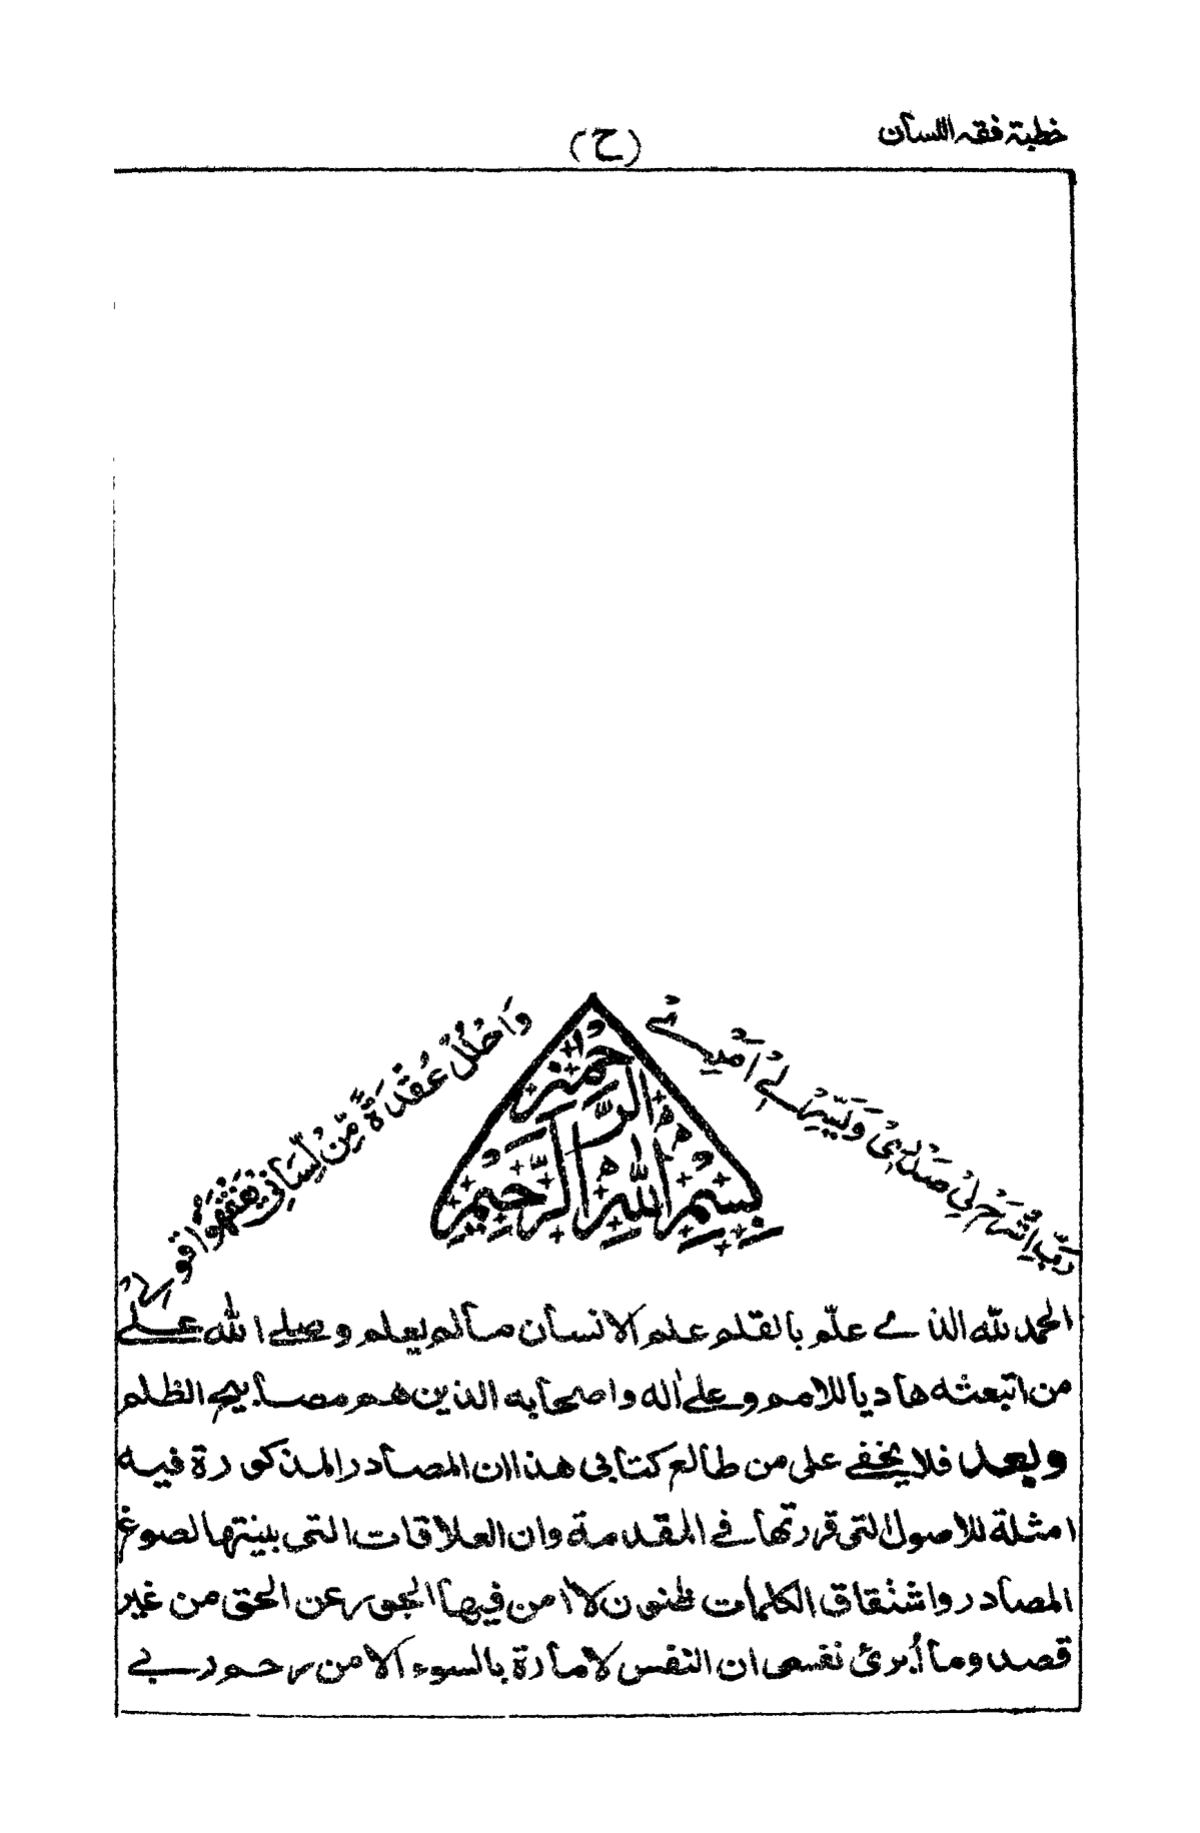 خطبة فقه اللسان
(ح)
رَبِّ اشْرَحْ لِيْ صَدْرِيْ وَيَسِّرْ لِيْ اَمْرِيْ
وَاحْلُلْ عُقْدَةً مِّنْ لِّسَانِيْ يَفْقَهُوْا قَوْلِيْ
بِسْمِ اللهِ الرَّحْمٰنِ الرَّحِيْمِ
الحمد لله الذي علّم بالقلم علم الانسان مالم يعلم وصلى الله على
من اتبعثه هاديا للامم وعلى اله واصحابه الذين هم مصابيح الظلم
وبعد فلا يخفى على من طالع كتابي هذا ان المصادر المذكورة فيه
امثلة للاصول التى قررتها في المقدمة وان العلاقات التى بينتها لصوغ
المصادر واشتقاق الكلمات ظنون لا امن فيها الجور عن الحق من غير
قصد وما أبرئ نفسى ان النفس لامارة بالسوء الا من رحم ربي